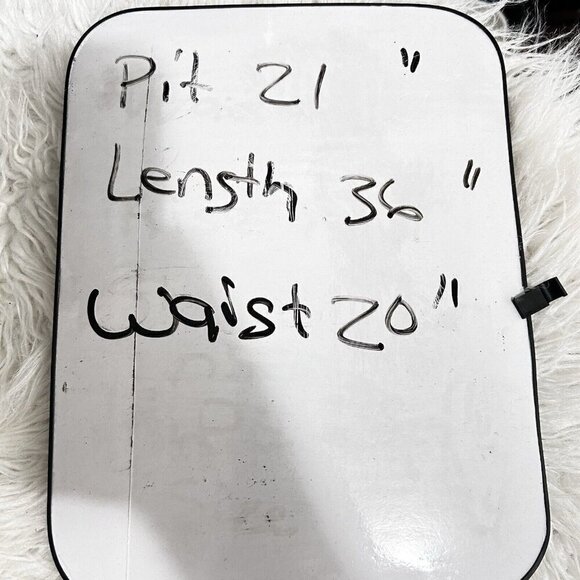 Pit 21 "
Length 36 "
Waist 20"